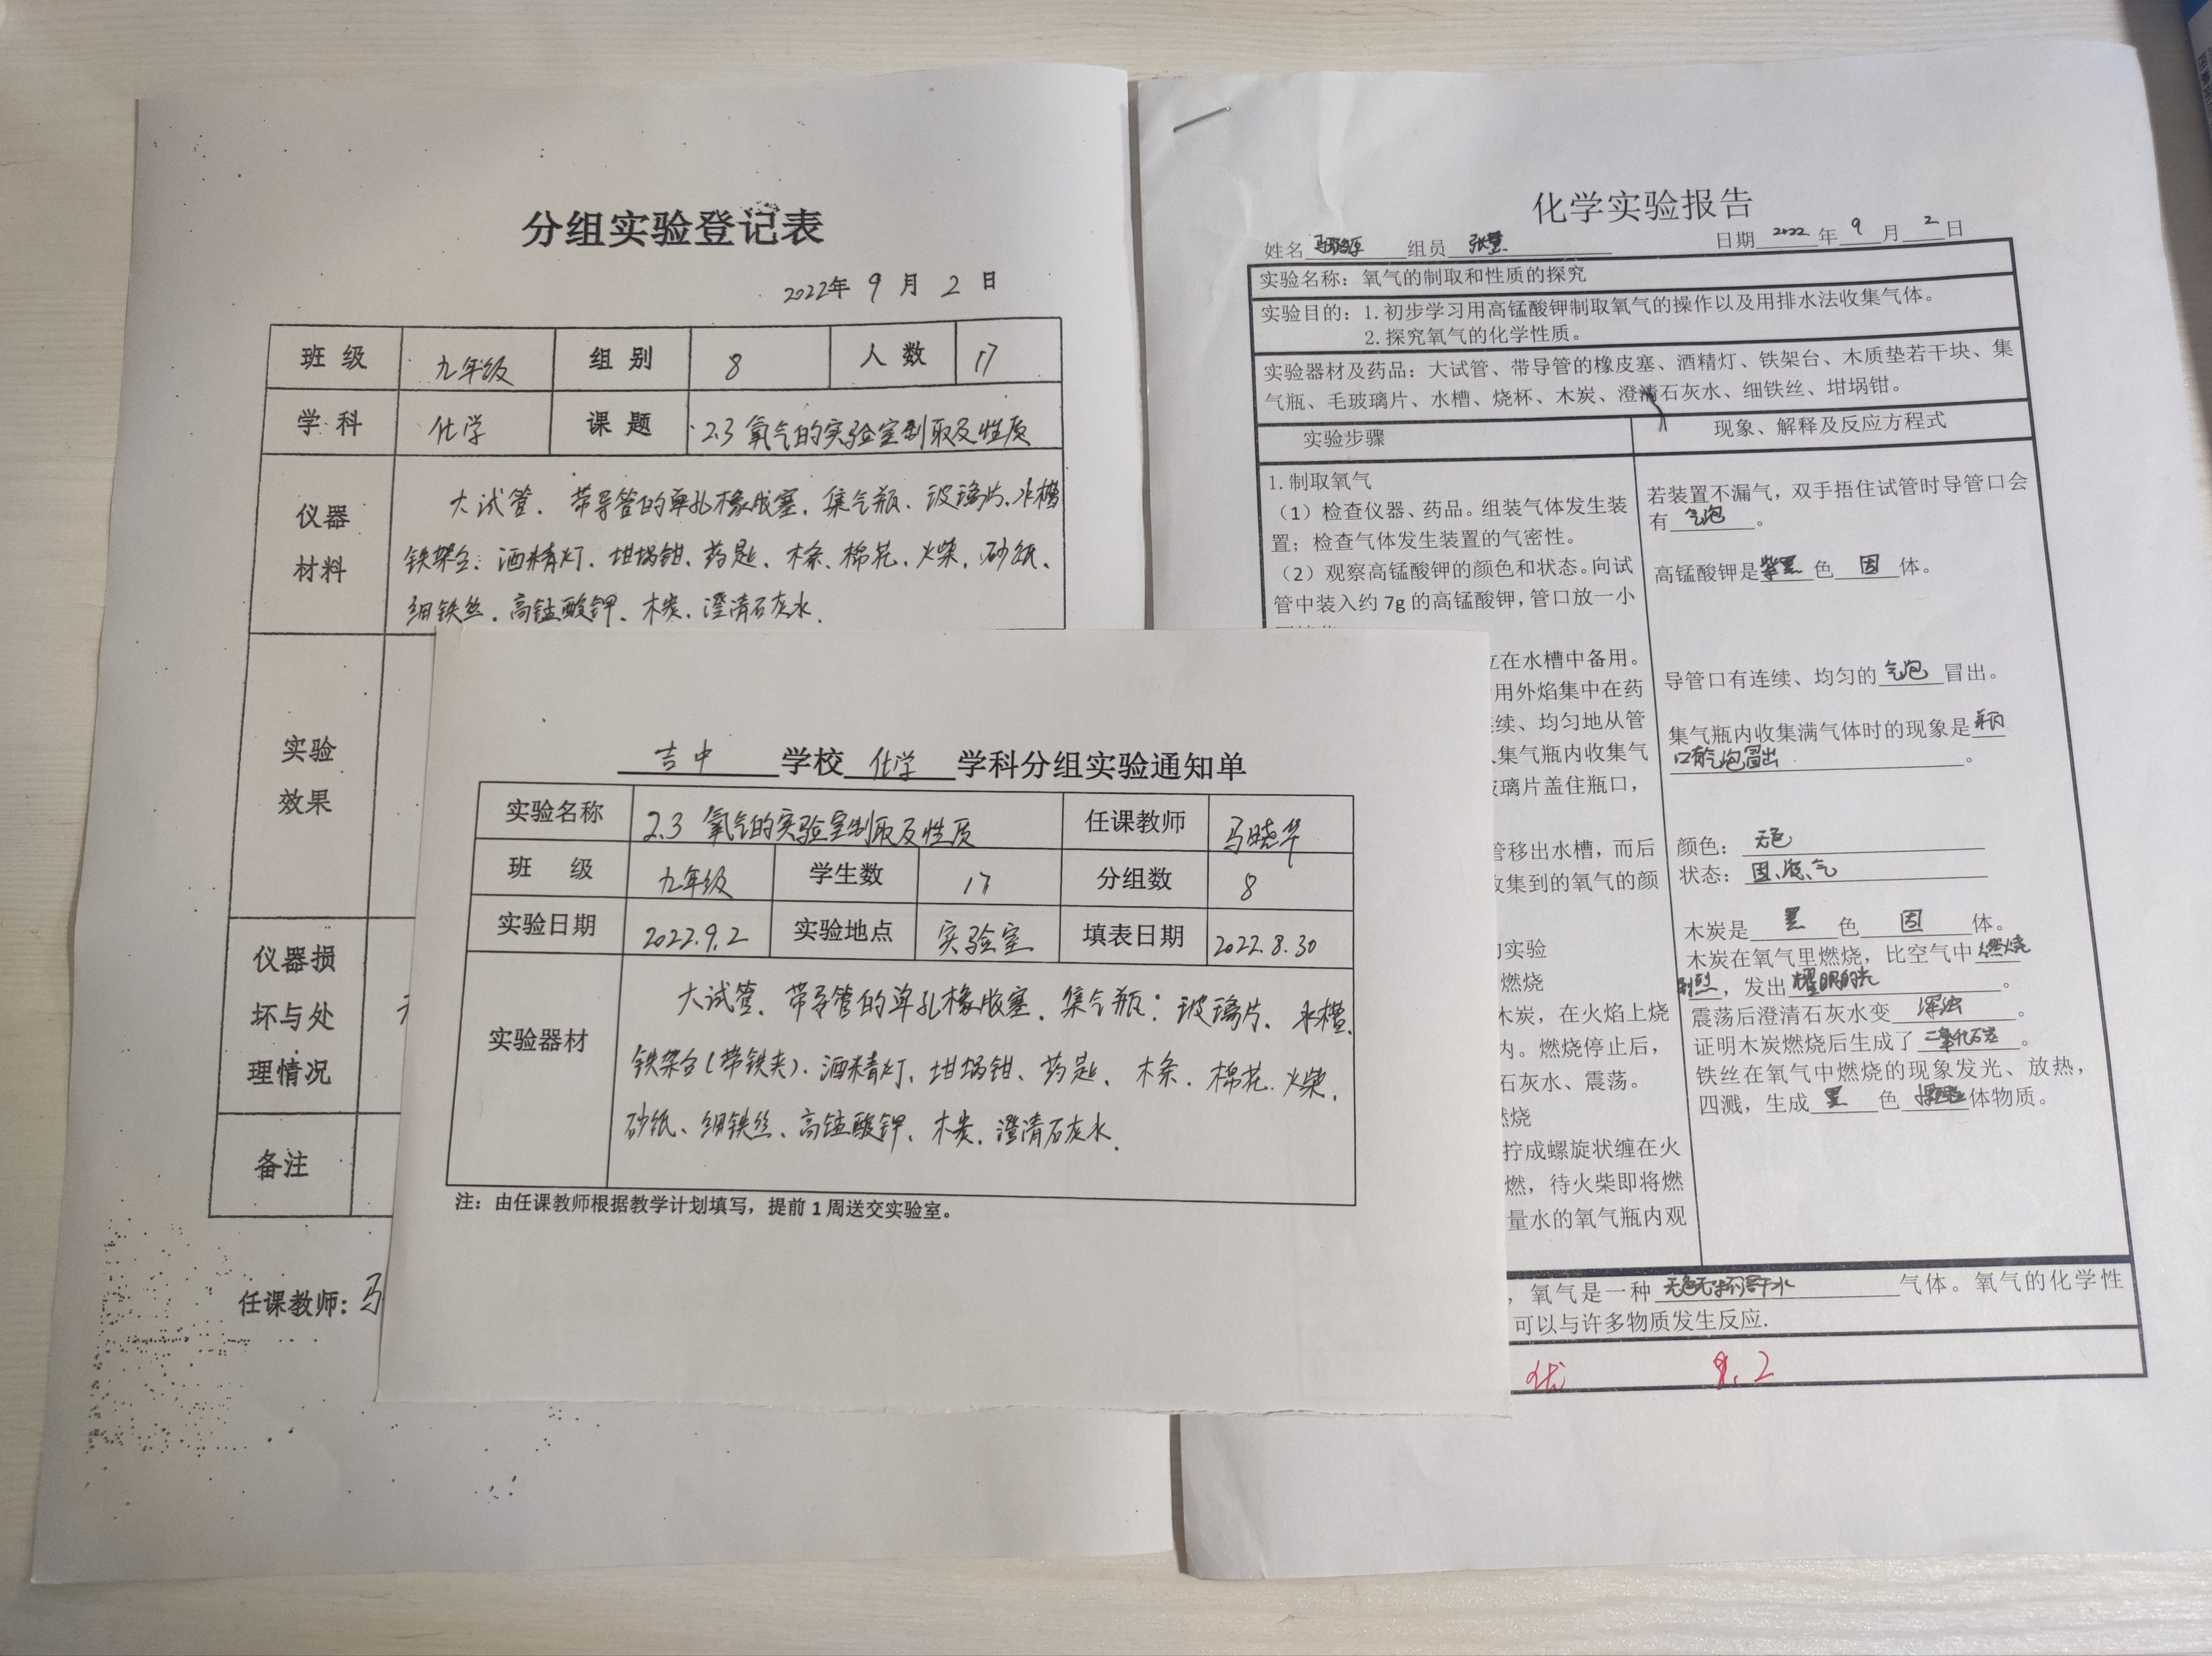 分组实验登记表
2022年 9 月 2 日
班 级 九年级 组 别 8 人 数 17
学 科 化学 课 题 2.3 氧气的实验室制取及性质
仪器
材料
大试管、带导管的单孔橡胶塞、集气瓶、玻璃片、水槽
铁架台、酒精灯、坩埚钳、药匙、木条、棉花、火柴、砂纸、
细铁丝、高锰酸钾、木炭、澄清石灰水.
实验
效果
仪器损
坏与处
理情况
备注
任课教师: 马
吉中 学校 化学 学科分组实验通知单
实验名称 2.3 氧气的实验室制取及性质 任课教师 马晓华
班 级 九年级 学生数 17 分组数 8
实验日期 2022.9.2 实验地点 实验室 填表日期 2022.8.30
实验器材
大试管、带导管的单孔橡胶塞、集气瓶、玻璃片、水槽、
铁架台(带铁夹)、酒精灯、坩埚钳、药匙、木条、棉花、火柴、
砂纸、细铁丝、高锰酸钾、木炭、澄清石灰水.
注：由任课教师根据教学计划填写，提前1周送交实验室。
化学实验报告
姓名 组员 张慧 日期 2022 年 9 月 2 日
实验名称：氧气的制取和性质的探究
实验目的：1.初步学习用高锰酸钾制取氧气的操作以及用排水法收集气体。
2.探究氧气的化学性质。
实验器材及药品：大试管、带导管的橡皮塞、酒精灯、铁架台、木质垫若干块、集
气瓶、毛玻璃片、水槽、烧杯、木炭、澄清石灰水、细铁丝、坩埚钳。
实验步骤 现象、解释及反应方程式
1.制取氧气
（1）检查仪器、药品。组装气体发生装
置；检查气体发生装置的气密性。
（2）观察高锰酸钾的颜色和状态。向试
管中装入约 7g 的高锰酸钾，管口放一小
立在水槽中备用。
用外焰集中在药
连续、均匀地从管
集气瓶内收集气
玻璃片盖住瓶口，
管移出水槽，而后
收集到的氧气的颜
的实验
燃烧
木炭，在火焰上烧
内。燃烧停止后，
石灰水、震荡。
燃烧
拧成螺旋状缠在火
燃，待火柴即将燃
量水的氧气瓶内观
若装置不漏气，双手捂住试管时导管口会
有 气泡 。
高锰酸钾是 紫黑 色 固 体。
导管口有连续、均匀的 气泡 冒出。
集气瓶内收集满气体时的现象是
口有气泡冒出 。
颜色： 无色
状态： 固、液、气
木炭是 黑 色 固 体。
木炭在氧气里燃烧，比空气中 燃烧
剧烈 ，发出 耀眼的光 。
震荡后澄清石灰水变 浑浊 。
证明木炭燃烧后生成了 二氧化碳 。
铁丝在氧气中燃烧的现象发光、放热，
四溅，生成 黑 色 体物质。
，氧气是一种 气体。氧气的化学性
可以与许多物质发生反应.
优 9.2